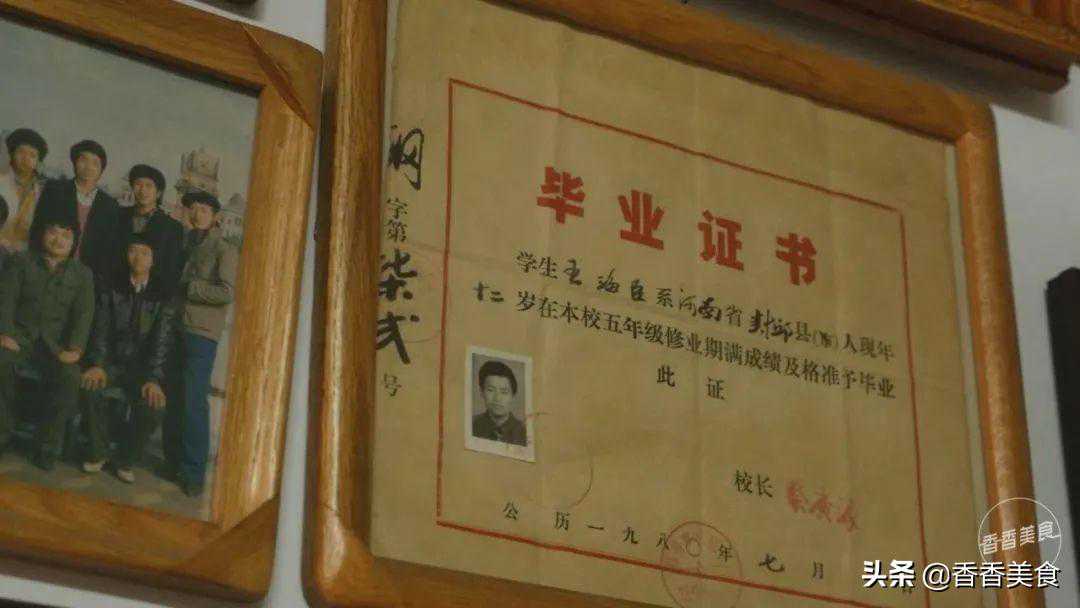 毕业证书
学生王海臣系河南省封邱县(市)人现年
十二岁在本校五年级修业期满成绩及格准予毕业
此证
校长
公历一九八〇年七月日
字第柒贰号
香香美食
头条 @香香美食